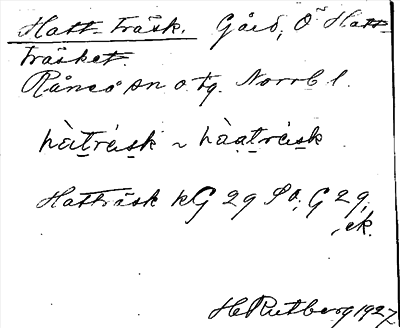 Hatt-träsk. Gård, Ö Hatt-
träsket
Råneå sn o tg. Norrb l.
hàträ́sk ~ hàaträ́sk
Hatträsk kG 29 So; G 29,
ek.
H Rutberg 1927